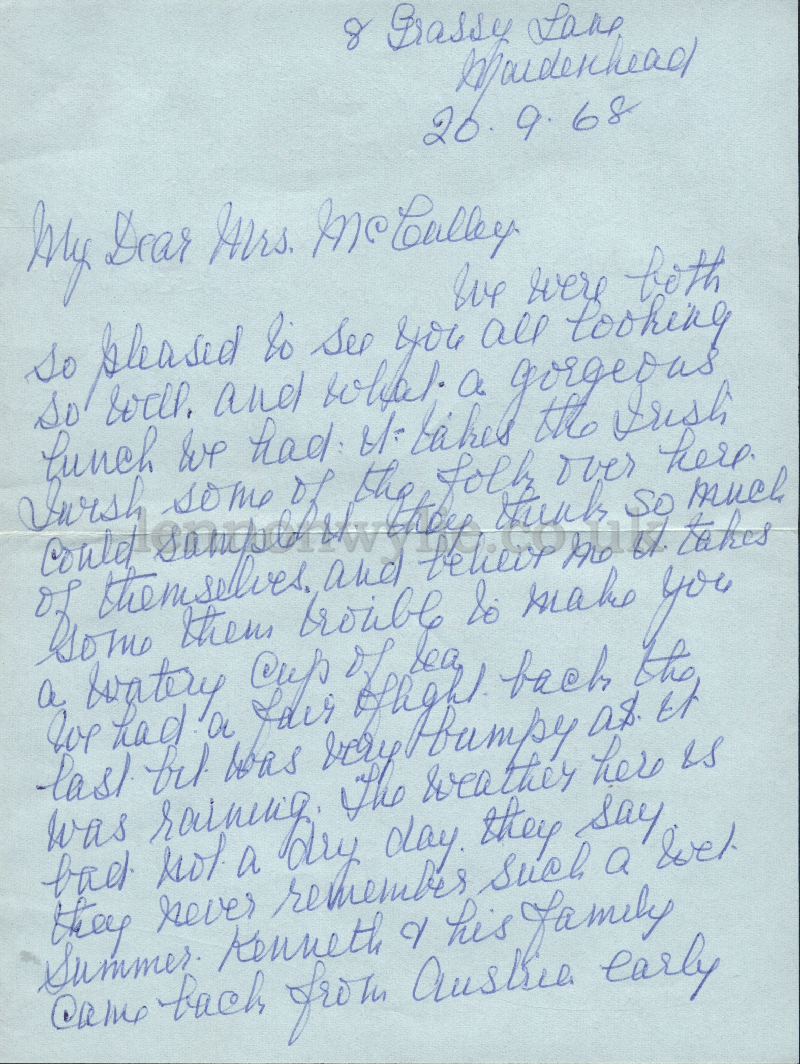 8 Grassy Lane
Maidenhead
20.9.68
My Dear Mrs. McCulley.
We were both
so pleased to see you all looking
so well. and what a gorgeous
lunch we had. it takes the Irish
I wish some of the folk over here.
could sample it they think so much
of themselves. and believe me it takes
some them trouble to make you
a watery cup of tea
We had a fair flight back the
last bit was very bumpy as it
was raining. The weather here is
bad not a dry day. they say
they never remember such a wet
Summer. Kenneth & his family
came back from Austria early
lennonwylie.co.uk